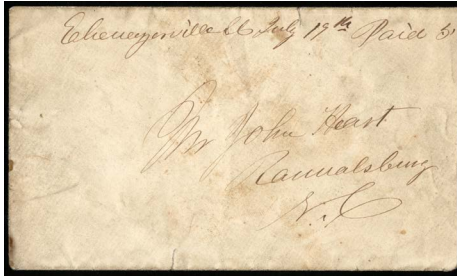 Ebenezerville SC July 19th Paid 5
Mr John Heart
Rannalsburg
N.C